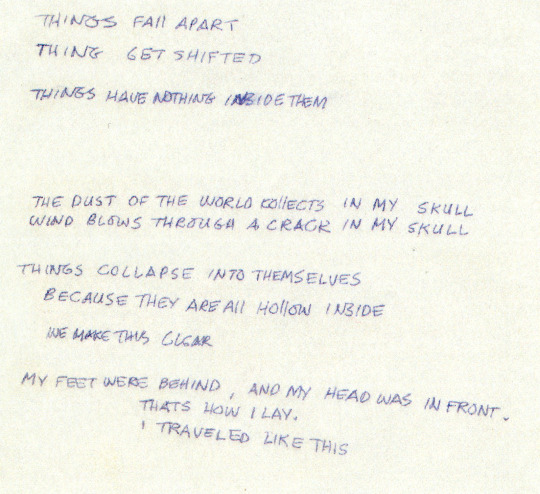 THINGS FAll APART
THING GET SHIFTED
THINGS HAVE NOTHING INSIDE THEM
THE DUST OF THE WORLD KOllECTS IN MY SKULL
WIND BLOWS THROUGH A CRACK IN MY SKULL
THINGS COLLAPSE INTO THEMSELVES
BECAUSE THEY ARE All HOllOW INSIDE
WE MAKE THIS CLEAR
MY FEET WERE BEHIND, AND MY HEAD WAS IN FRONT.
THATS HOW I LAY.
I TRAVELED LIKE THIS